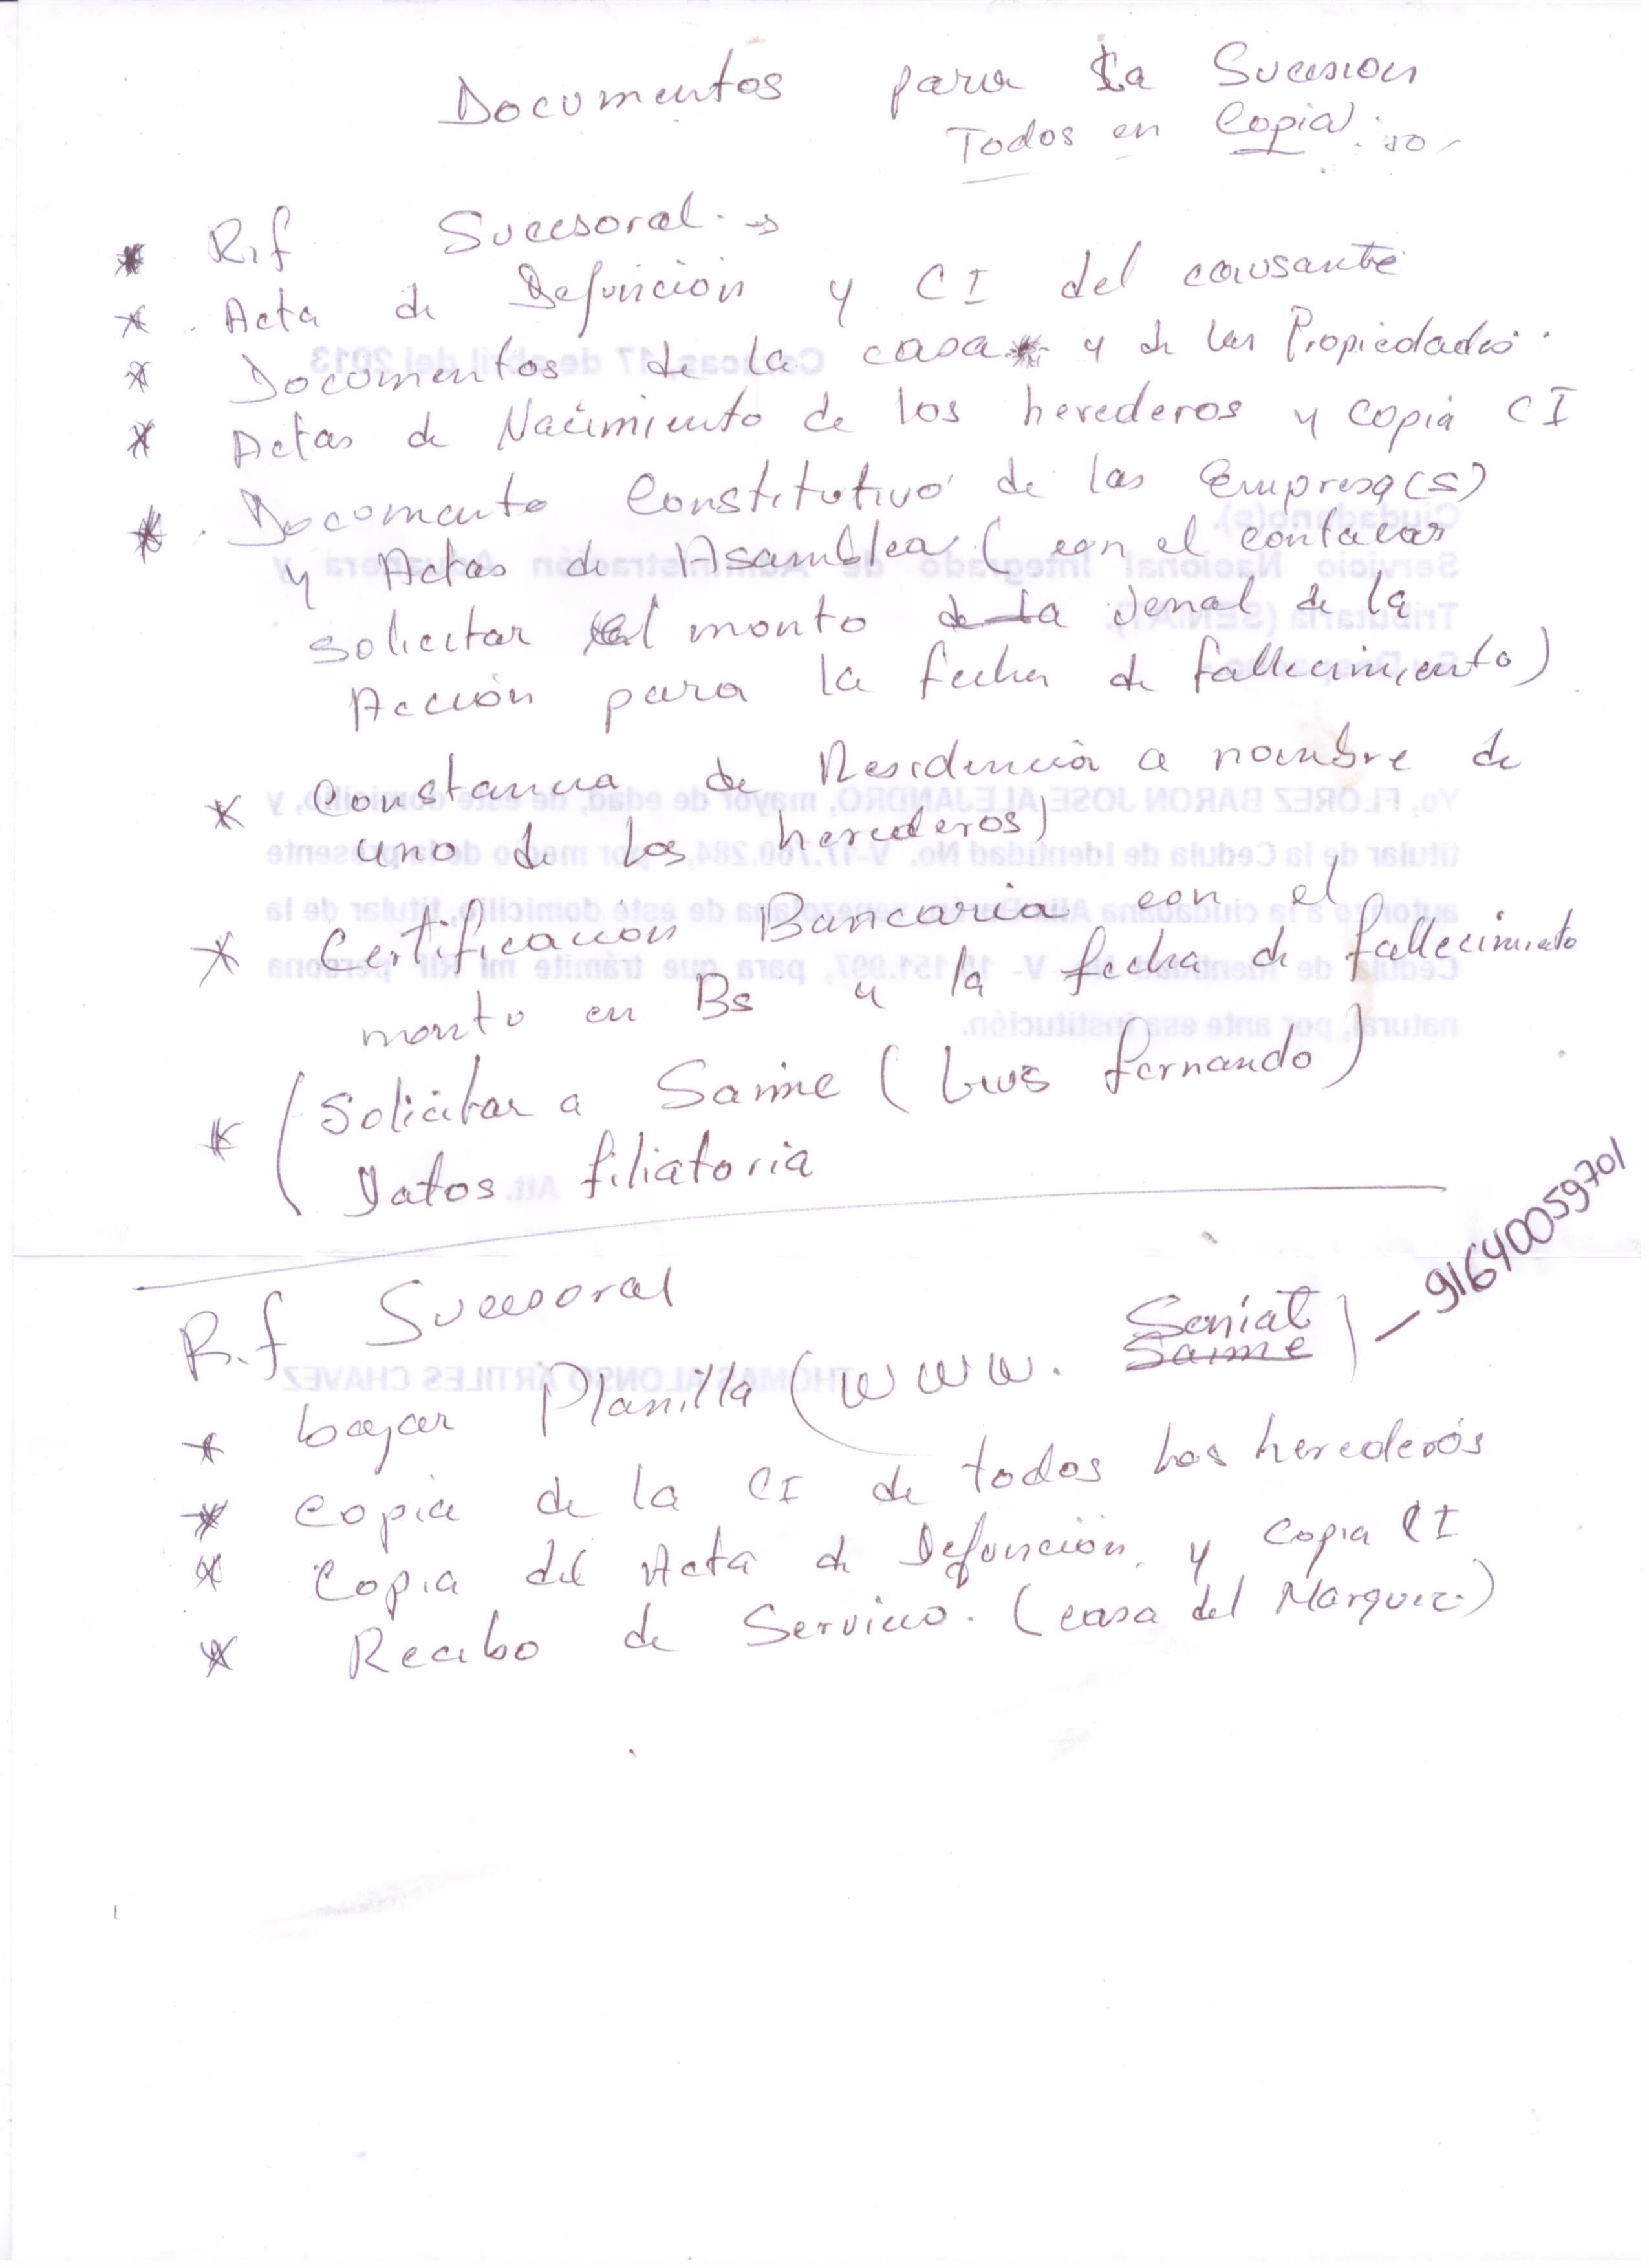 Documentos para la Sucesion
Todos en Copia
* Rif Sucesoral
* Acta de Defuncion y CI del causante
* Documentos de la casa y de las Propiedades.
* Actas de Nacimiento de los herederos y copia CI
* Documento Constitutivo de las Empresa(s)
y Actas de Asamblea (con el contador
solicitar el monto de la de la
Acción para la fecha de fallecimiento)
* Constancia de Residencia a nombre de
uno de los herederos)
* Certificación Bancaria con el
monto en Bs a la fecha de fallecimiento
* (Solicitar a Saime (Luis fernando)
Datos filiatoria
Rif Sucesoral
* bajar Planilla (www. Seniat Saime) - 91640059701
* Copia de la CI de todos los herederos
* Copia del Acta de Defunción y Copia CI
* Recibo de Servicio. (casa del Marquez)
Caracas, 17 de abril del 2013
Ciudadano(s).
Servicio Nacional Integrado de Administración Aduanera y
Tributaria (SENIAT).
Yo, FLOREZ BARON JOSE ALEJANDRO, mayor de edad, de este domicilio, y
titular de la Cedula de Identidad No. por medio de la presente
autorizo a la ciudadana venezolana de este domicilio, titular de la
Cedula de Identidad V- para que trámite mi RIF persona
natural, por ante esa institución.
Att.
THOMAS ALONSO ARTILES CHAVEZ